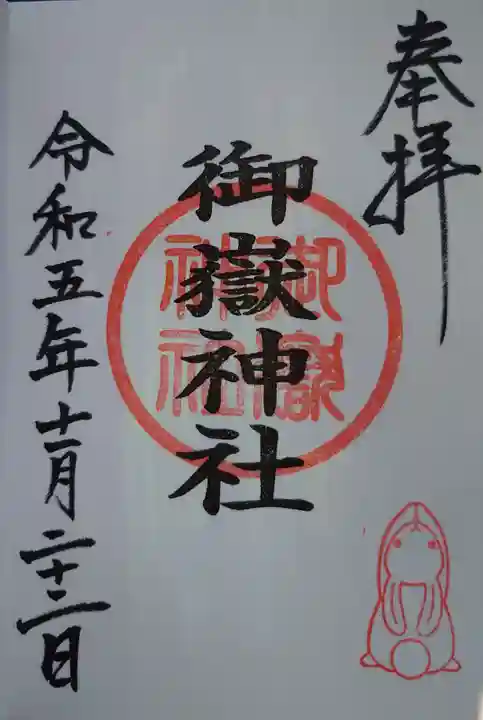 奉拝
御嶽神社
御嶽神社
令和五年十一月二十二日